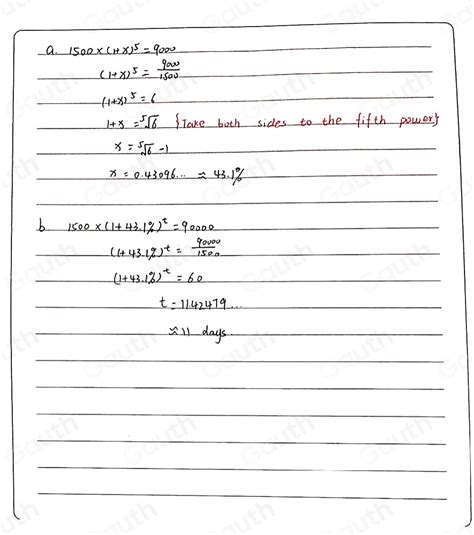 a. 1500 × (1+x)⁵ = 9000
(1+x)⁵ = 9000/1500
(1+x)⁵ = 6
1+x = ⁵√6 {Take both sides to the fifth power}
x = ⁵√6 - 1
x = 0.43096... ≈ 43.1%
b. 1500 × (1+43.1%)ᵗ = 90000
(1+43.1%)ᵗ = 90000/1500
(1+43.1%)ᵗ = 60
t = 11.42479...
≈ 11 days